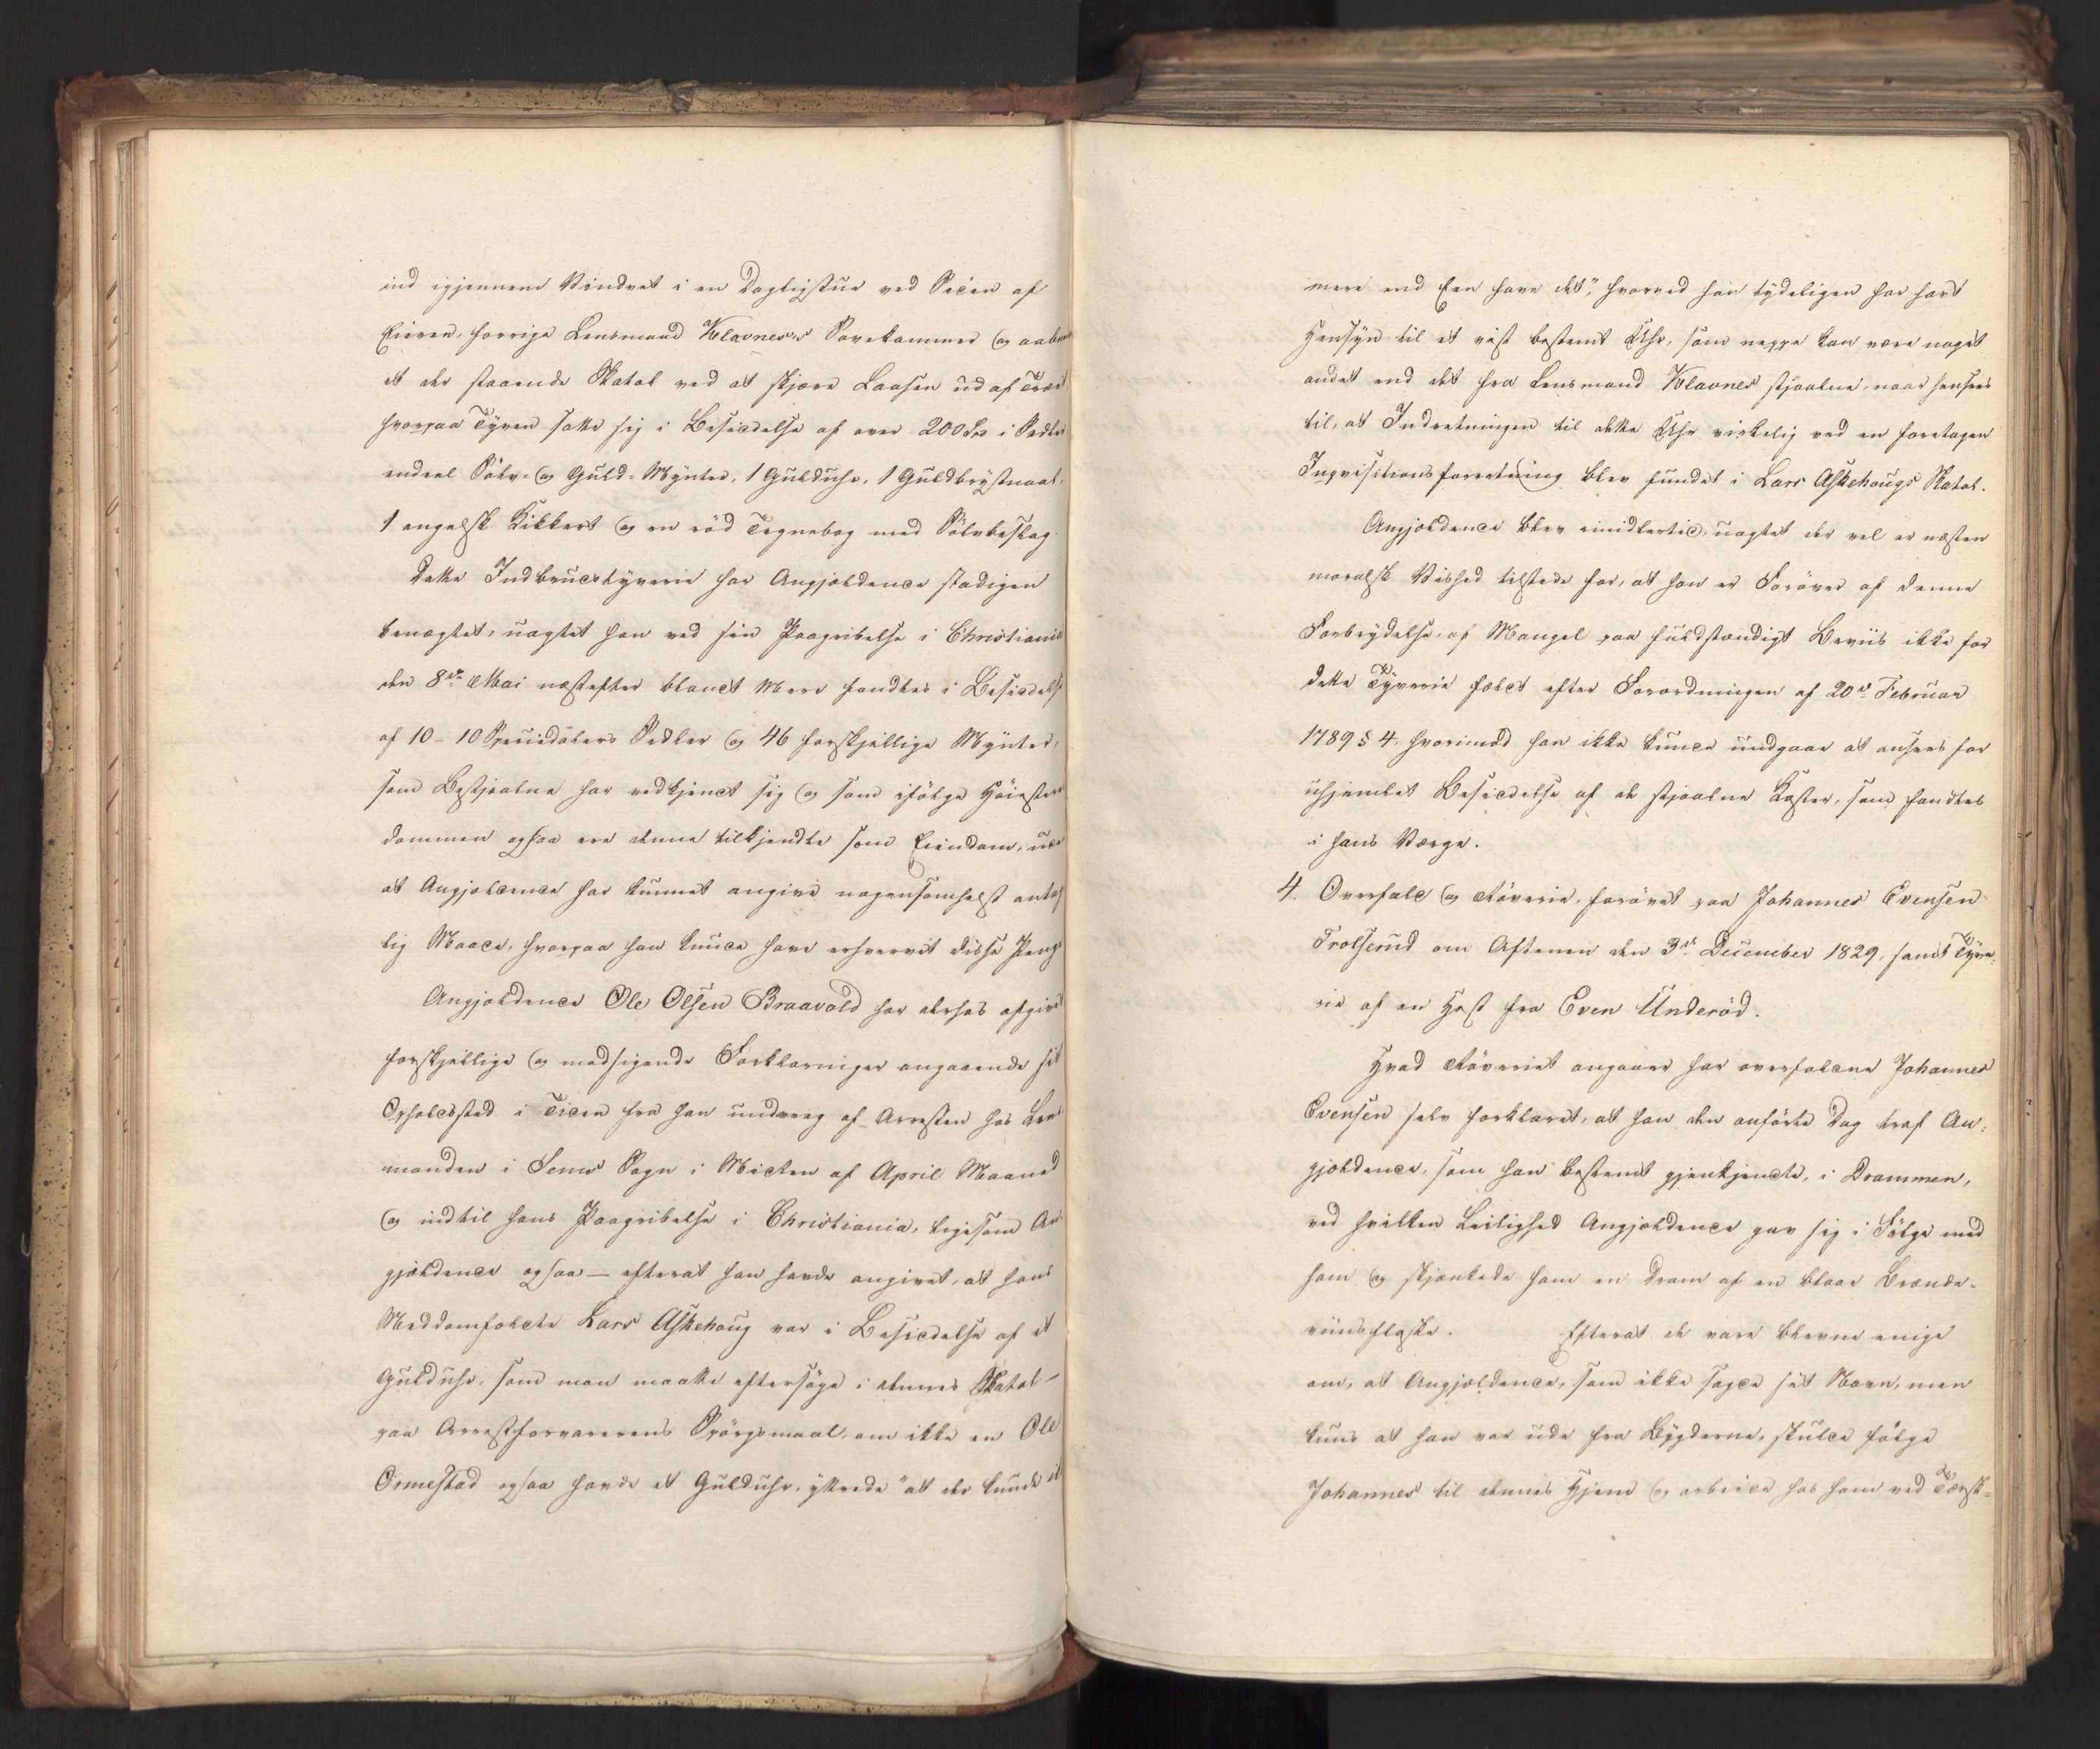 ind igjennem Vinduet i en Dagligstue ved Siden af
Eieren, forrige Lensmand Klavness's Sovekammer og aabnet
et der staaende Skatol ved at skjære Laasen ud af Træet
hvorpaa Tyven satte sig i Besiddelse af over 200 Spd i Sedler
endeel Sölv- og Guld-Mynter, 1 Gulduhr, 1 Guldbrystnaal,
1 engelsk Kikkert og en röd Tegnebog med Sölvbeslag.
Dette Indbrudstyverie har Angjældende stadigen
benægtet, uagtet han ved sin Paagribelse i Christiania
den 8de Mai næstefter blandt Mere fandtes i Besiddelse
af 10-10 Speciedalers Sedler og 46 forskjellige Mynter,
som Bestjaalne har vedkjendt sig og som ifölge Höiesterets
dommen ogsaa ere denne tilkjendte som Eiendom, uden
at Angjældende har kunnet angive nogensomhelst antag
lig Maade, hvorpaa han kunde have erhvervet disse Penge
Angjældende Ole Olsen Braavold har derhos afgivet
forskjellige og modsigende Forklaringer angaaende sit
Opholdssted i Tiden fra han undveeg af Arresten hos Lens
manden i Sems Sogn i Midten af April Maaned
og indtil hans Paagribelse i Christiania, ligesom An
gjældende ogsaa — efterat han havde angivet, at hans
Meddomfældte Lars Askehoug var i Besiddelse af et
Gulduhr, som man maatte eftersöge i dennes Skatol —
paa Arrestforvarerens Spörgsmaal, om ikke en Ole
Ormestad ogsaa havde et Gulduhr, yttrede "at der kunde ei
mere end Een have det", hvorved han tydeligen har havt
Hensyn til et vist bestemt Uhr, som neppe kan være noget
andet end det fra Lensmand Klavnes stjaalne, naar hensees
til, at Indretningen til dette Uhr virkelig ved en foretagen
Inqvisitionsforretning blev fundet i Lars Askehougs Skatol.
Angjældende blev imidlertid, uagtet der vel er næsten
moralsk Vished tilstede for, at han er Forøver af denne
Forbrydelse, af Mangel paa fuldstændigt Beviis ikke for
dette Tyverie fældt efter Forordningen af 20de Februar
1789 § 4. hvorimod han ikke kunde undgaae at ansees for
uhjemlet Besiddelse af de stjaalne Koster, som fandtes
i hans Værge.
4. Overfald og Röverie, forövet paa Johannes Evensen
Trolserud om Aftenen den 3de December 1829, samt Tyve-
rie af en Hest fra Even Underöd.
Hvad Röveriet angaaer har overfaldne Johannes
Evensen selv forklaret, at han den anförte Dag traf An-
gjældende, som han bestemt gjenkjendte, i Drammen,
ved hvilken Leilighed Angjældende gav sig i Fölge med
ham og skjænkede ham en Dram af en blaae Brænde-
viinsflaske. Efterat de vare blevne enige
om, at Angjældende, som ikke sagde sit Navn, men
kuns at han var ude fra Bygderne, skulde fölge
Johannes til dennes Hjem og arbeide hos ham ved Tærsk-